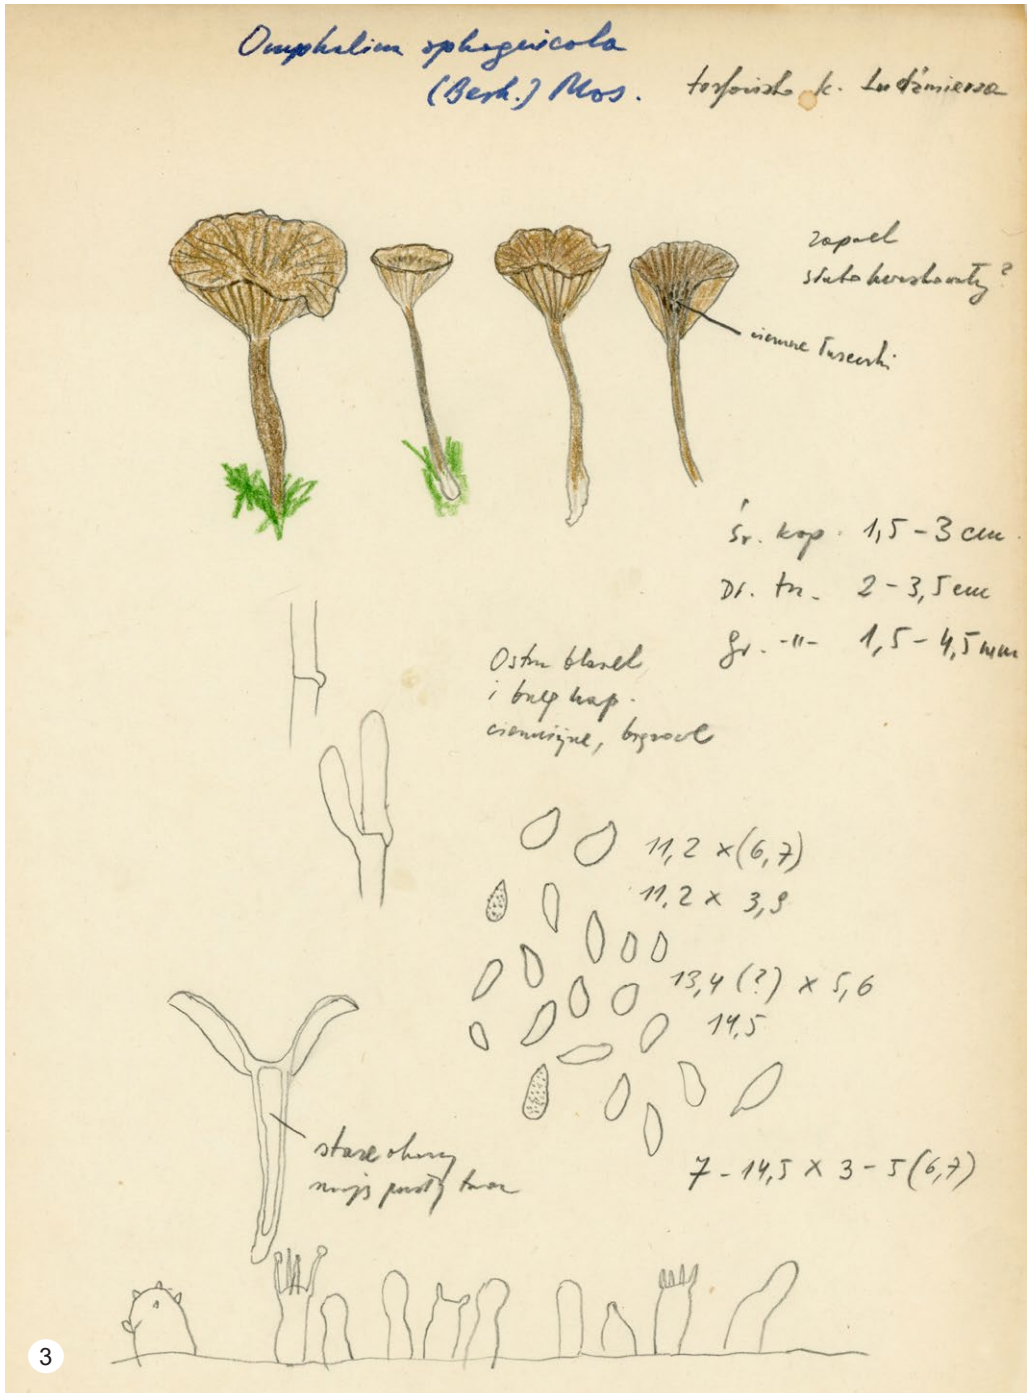 Omphalina sphagnicola
(Berk.) Mos.
torfowisko k. Ludźmierza
zapach
słabo kwaskowaty?
ciemne łuseczki
śr. kap. 1,5 - 3 cm
Dł. trz. 2 - 3,5 cm
gr. -"- 1,5 - 4,5 mm
Ostrze blaszek
i brzeg kap.
ciemniejsze, brązowe
11,2 × (6,7)
11,2 × 3,9
13,4 (?) × 5,6
14,5
7 - 14,5 × 3 - 5 (6,7)
stare okazy
mają pusty trzon
3